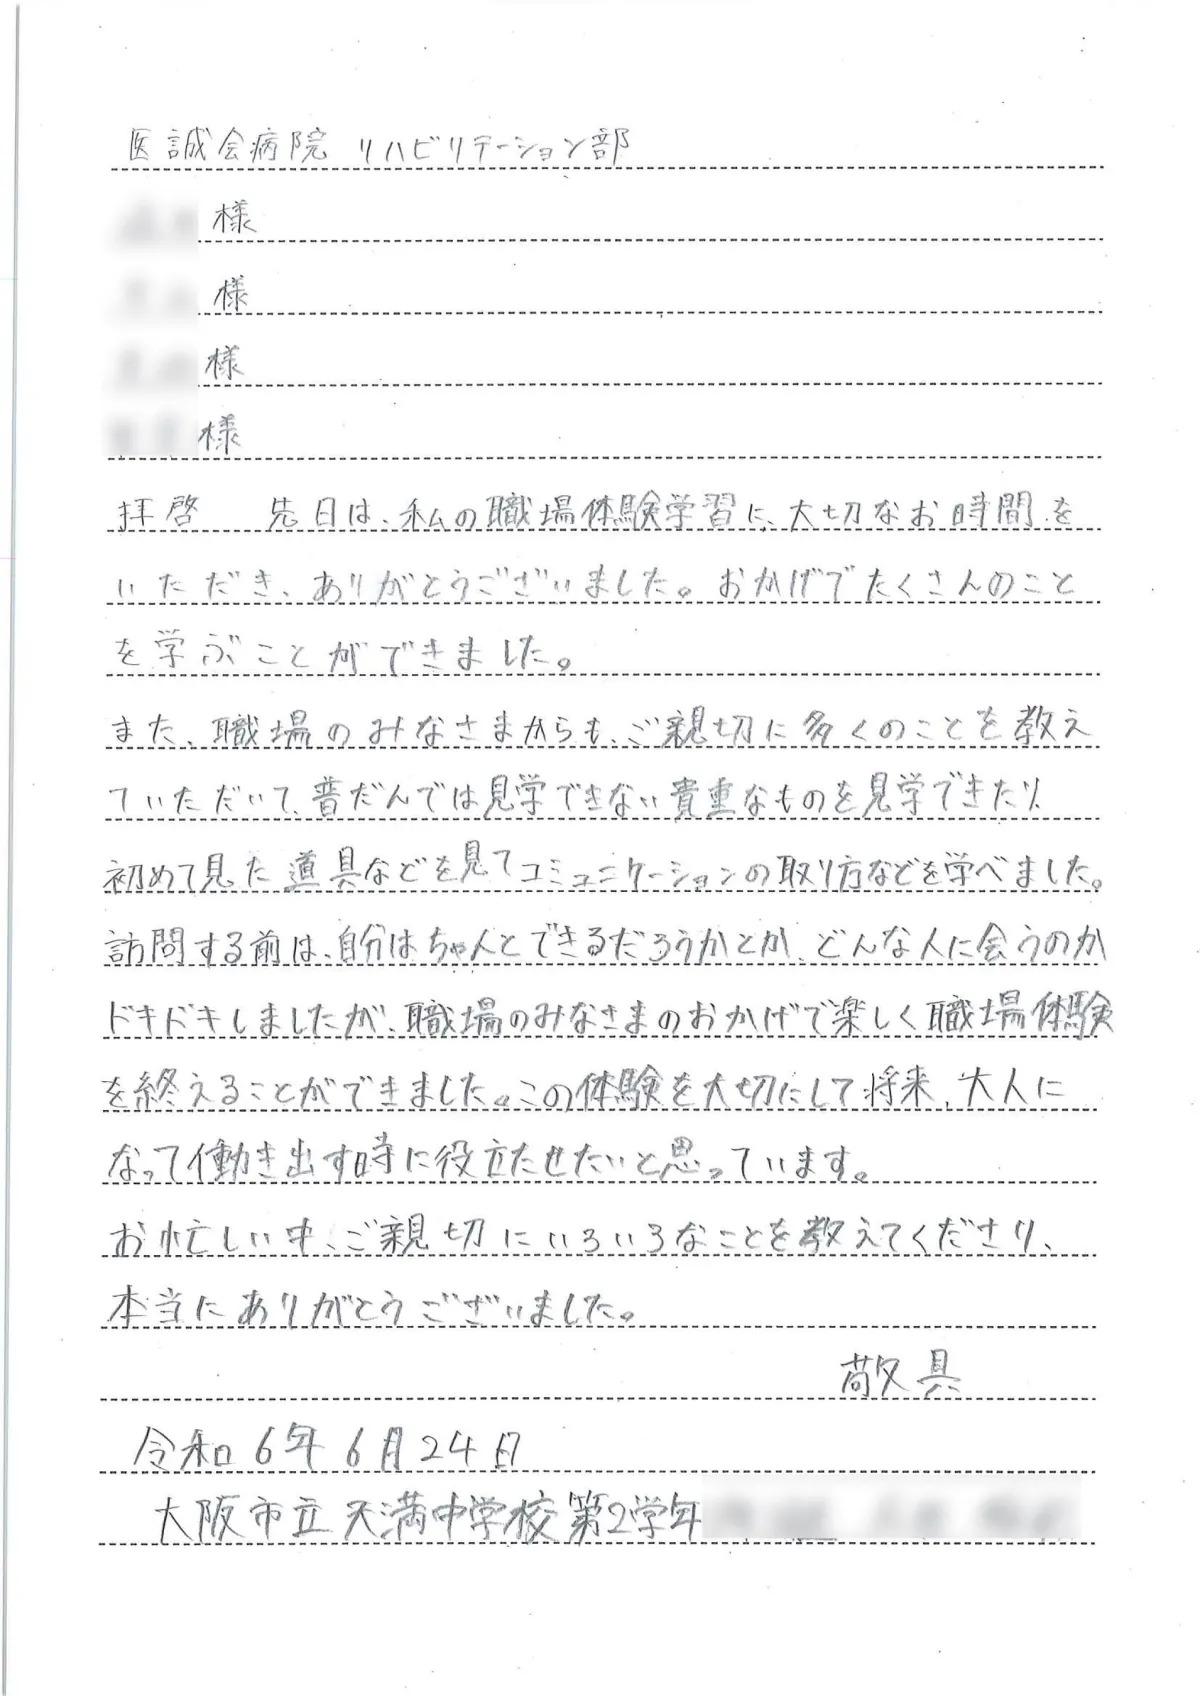 医誠会病院 リハビリテーション部
様
様
様
様
拝啓　先日は、私の職場体験学習に、大切なお時間を
いただき、ありがとうございました。おかげでたくさんのこと
を学ぶことができました。
また、職場のみなさまからも、ご親切に多くのことを教え
ていただいて、普だんでは見学できない貴重なものを見学できたり、
初めて見た道具などを見てコミュニケーションの取り方などを学べました。
訪問する前は、自分はちゃんとできるだろうかとか、どんな人に会うのか
ドキドキしましたが、職場のみなさまのおかげで楽しく職場体験
を終えることができました。この体験を大切にして将来、大人に
なって働き出す時に役立たせたいと思っています。
お忙しい中、ご親切にいろいろなことを教えてくださり、
本当にありがとうございました。
敬具
令和6年6月24日
大阪市立天満中学校第2学年